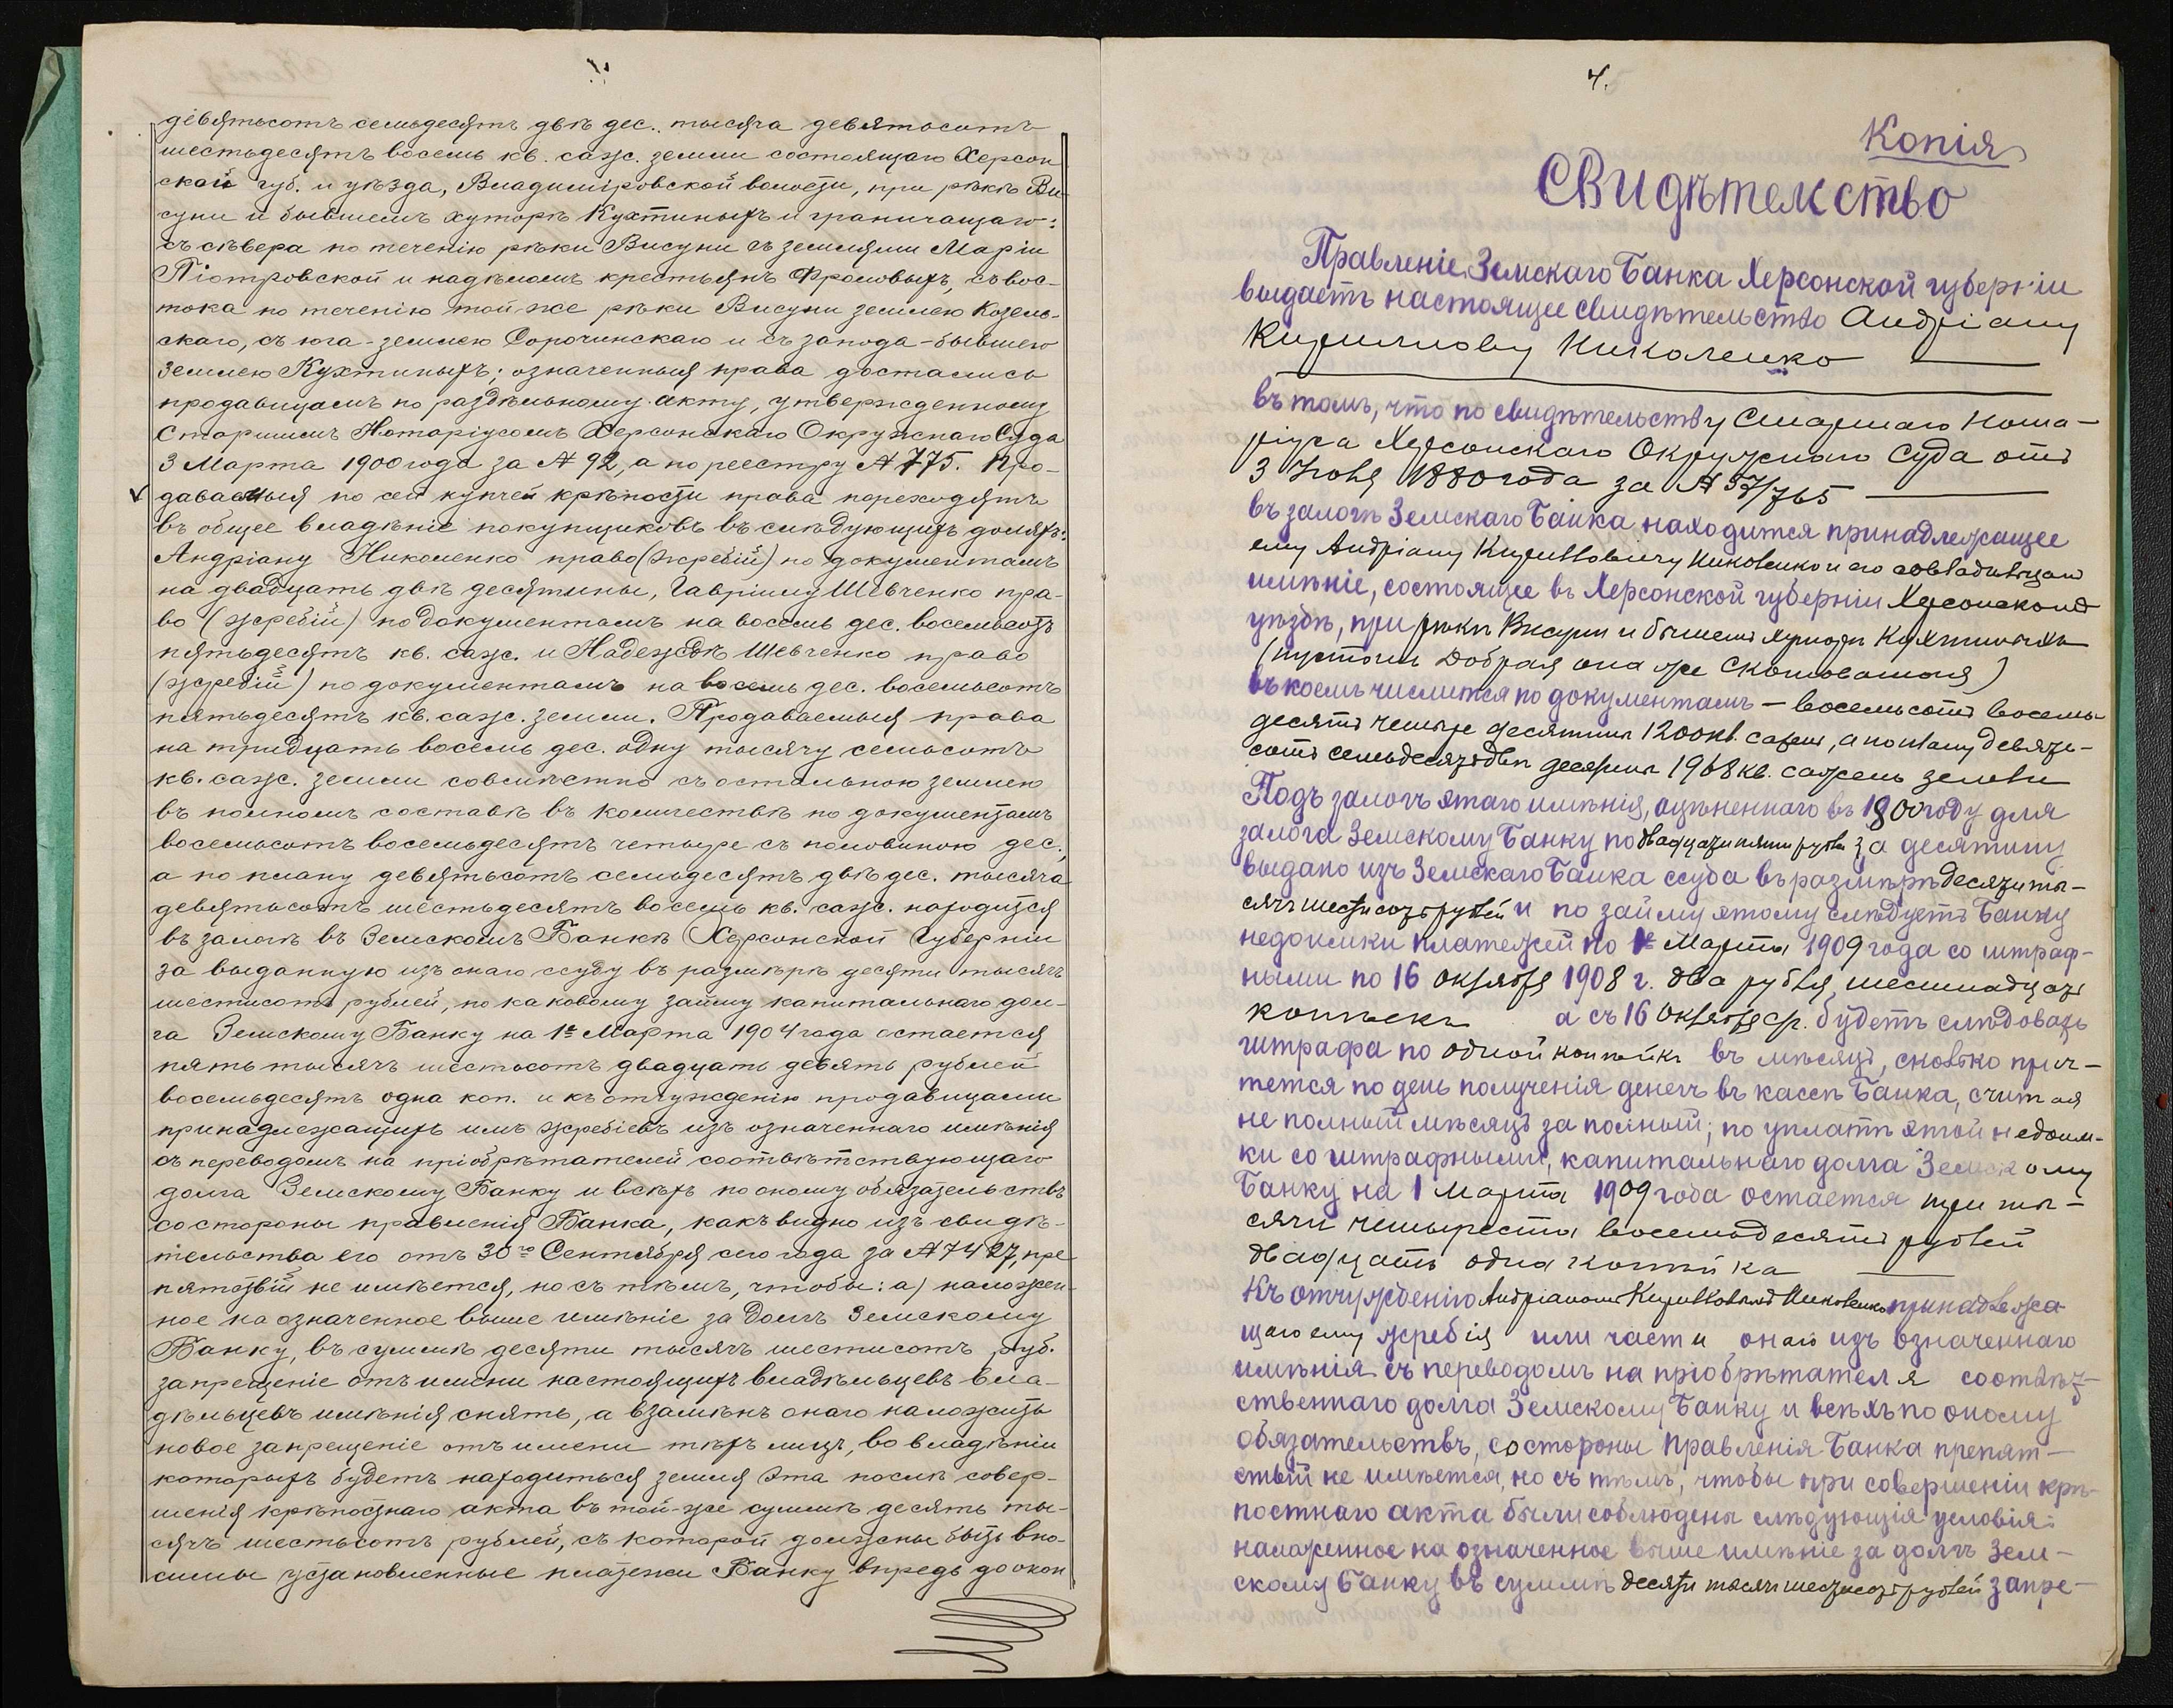 девятьсотъ семьдесятъ двѣ дес. тысяча девятьсотъ
шестьдесятъ восемь кв. саж. земли состоящаго Херсон
ской губ. и уѣзда, Владимировской волости, при рѣкѣ Ви-
суни и бывшемъ хуторѣ Кухтиныхъ и граничащаго:
съ сѣвера по теченію рѣки Висуни съ землями Маріи
Піотровской и надѣломъ крестьянъ Фроловыхъ, съ вос-
тока по теченію той-же рѣки Висуни землею Козель-
скаго, съ юга - землею Сорочинскаго и съ запода - бывшею
землею Кухтиныхъ; означенныя права достались
продавцамъ по раздѣльному акту, утвержденному
Старшимъ Нотаріусомъ Херсонскаго Окружнаго Суда
3 Марта 1900 года за № 92, а по реестру № 775. Про-
даваемыя по сей купчей крѣпости права переходятъ
въ общее владѣніе покупщиковъ въ слѣдующихъ доляхъ:
Андріану Николенко право (жребій) по документамъ
на двадцать двѣ десятины, Гавріилу Шевченко пра-
во (жребій) по документамъ на восемь дес. восемьсотъ
пятьдесятъ кв. саж. и Надеждѣ Шевченко право
(жребій) по документамъ на восемь дес. восемьсотъ
пятьдесятъ кв. саж. земли. Продаваемыя права
на тридцать восемь дес. одну тысячу семьсотъ
кв. саж. земли совмѣстно съ остальною землею
въ полномъ составѣ въ количествѣ по документамъ
восемьсотъ восемьдесятъ четыре съ половиною дес.,
а по плану девятьсотъ семьдесятъ двѣ дес. тысяча
девятьсотъ шестьдесятъ восемь кв. саж. находится
въ залогѣ въ Земскомъ Банкѣ Херсонской Губерніи
за выданную изъ онаго ссуду въ размѣрѣ десяти тысячъ
шестисотъ рублей, по каковому займу капитальнаго дол-
га Земскому Банку на 1е Марта 1904 года остается
пять тысячъ шестьсотъ двадцать девять рублей
восемьдесятъ одна коп. и къ отчужденію продавцами
принадлежащихъ имъ жребіевъ изъ означеннаго имѣнія
съ переводомъ на пріобрѣтателей соотвѣтствующаго
долга Земскому Банку и всѣхъ по оному обязательствъ
со стороны правленія Банка, какъ видно изъ свидѣ-
тельства его отъ 30го Сентября сего года за № 7427, пре
пятствій не имѣется, но съ тѣмъ, чтобы: а) наложен-
ное на означенное выше имѣніе за долгъ Земскому
Банку, въ суммѣ десяти тысячъ шестисотъ руб.
запрещеніе отъ имени настоящихъ владѣльцевъ вла-
дѣльцевъ имѣнія снять, а взамѣнъ онаго наложить
новое запрещеніе отъ имени тѣхъ лицъ, во владѣніи
которыхъ будетъ находиться земля эта послѣ совер-
шенія крѣпостнаго акта въ той-же суммѣ десять ты-
сячъ шестьсотъ рублей, съ которой должны быть вно-
симы установленные платежи Банку впредь до окон
4.
Копія
Свидѣтельство
Правленіе Земскаго Банка Херсонской губерніи
выдаетъ настоящее свидѣтельство Андріану
Кириллову Николенко
въ томъ, что по свидѣтельству Старшаго Нота-
ріуса Херсонскаго Окружного Суда отъ
3 Іюня 1880 года за № 57/765
въ залогѣ Земскаго Банка находится принадлежащее
ему Андріану Кирилловичу Николенко и его совладѣльцамъ
имѣніе, состоящее въ Херсонской губерніи Херсонскомъ
уѣздѣ, при рѣкѣ Висуни и бывшемъ хуторѣ Кухтиныхъ
(пустошь Добрая она же Скотоватая)
въ коемъ числится по документамъ - восемьсотъ восемь-
десятъ четыре десятины 1200 кв. сажень, а по плану девять-
сотъ семьдесятъ двѣ десятины 1968 кв. сажень земли
Подъ залогъ этаго имѣнія, оцѣненнаго въ 1800 году для
залога Земскому Банку по двадцати пяти рубл за десятину
выдано изъ Земскаго Банка ссуда въ размѣрѣ десяти ты-
сячъ шестисотъ рублей и по займу этому слѣдуетъ Банку
недоимки платежей по 1е Марта 1909 года со штраф-
ными по 16 октября 1908 г. два рубля шестнадцать
копѣекъ а съ 16 Октября ср. будетъ слѣдовать
штрафа по одной копѣйкѣ въ мѣсяцъ, сколько прич-
тется по день полученія денегъ въ кассѣ Банка, считая
не полный мѣсяцъ за полный; по уплатѣ этой недоим-
ки со штрафными, капитальнаго долга Земскому
Банку на 1 Марта 1909 года остается три ты-
сячи четыреста восемьдесятъ рублей
двадцать одна копѣйка
Къ отчужденію Андріаномъ Кирилловымъ Николенко принадлежа-
щаго ему жребія или части онаго изъ означеннаго
имѣнія съ переводомъ на пріобрѣтателя соотвѣт-
ственнаго долга Земскому Банку и всѣхъ по оному
обязательствъ, со стороны Правленія Банка препят-
ствій не имѣется, но съ тѣмъ, чтобы при совершеніи крѣ-
постнаго акта были соблюдены слѣдующія условія:
наложенное на означенное выше имѣніе за долгъ Зем-
скому Банку въ суммѣ десяти тысячъ шестисотъ рублей запре-